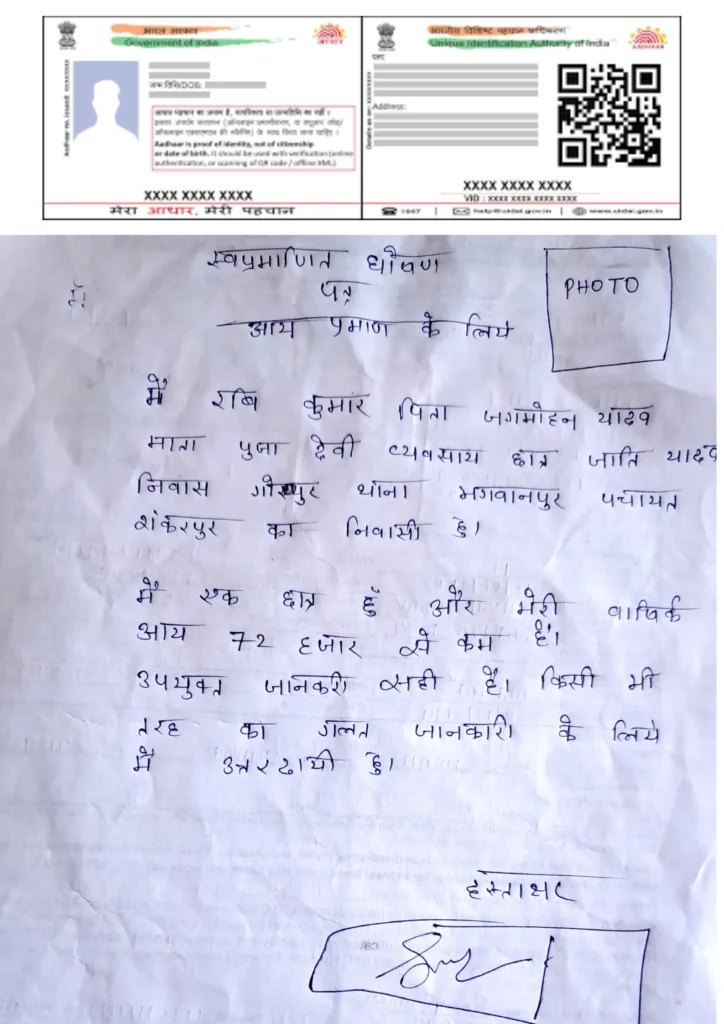 भारत सरकार
Government of India
आधार
जन्म तिथि/DOB:
Aadhaar no. issued: xxxxxxxx
आधार पहचान का प्रमाण है, नागरिकता या जन्मतिथि का नहीं।
Aadhaar is proof of identity, not of citizenship
or date of birth. It should be used with verification (online
authentication, or scanning of QR code / offline XML).
XXXX XXXX XXXX
मेरा आधार, मेरी पहचान
भारतीय विशिष्ट पहचान प्राधिकरण
Unique Identification Authority of India
AADHAAR
पता:
Address:
Details as on: xxxxxxxx
XXXX XXXX XXXX
VID : xxxx xxxx xxxx xxxx
1947 | help@uidai.gov.in | www.uidai.gov.in
स्वप्रमाणित घोषण
पत्र
PHOTO
मैं
आय प्रमाण के लिये
मैं रवि कुमार पिता जगमोहन यादव
माता पुजा देवी व्यवसाय छात्र जाति यादव
निवास थाना भगवानपुर पचायत
शंकरपुर का निवासी हु।
मैं एक छात्र हुँ और मेरी वार्षिक
आय 72 हजार से कम हैं।
उपयुक्त जानकरी सही हैं। किसी भी
तरह का गलत जानकारी के लिये
मैं उत्तरदायी हु।
हस्ताक्षर